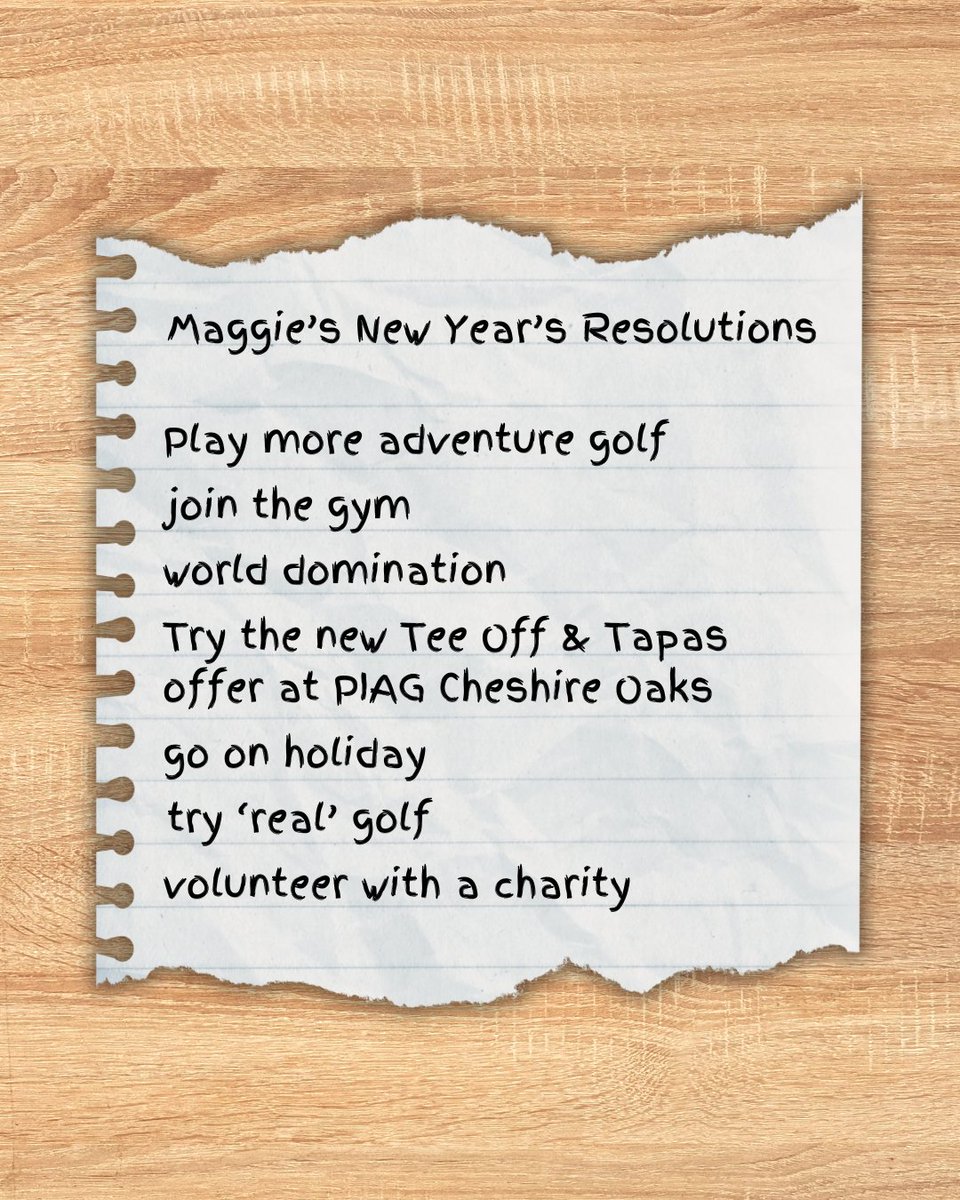 Maggie's New Year's Resolutions
Play more adventure golf
join the gym
world domination
Try the new Tee Off & Tapas
offer at PIAG Cheshire Oaks
go on holiday
try ‘real’ golf
volunteer with a charity